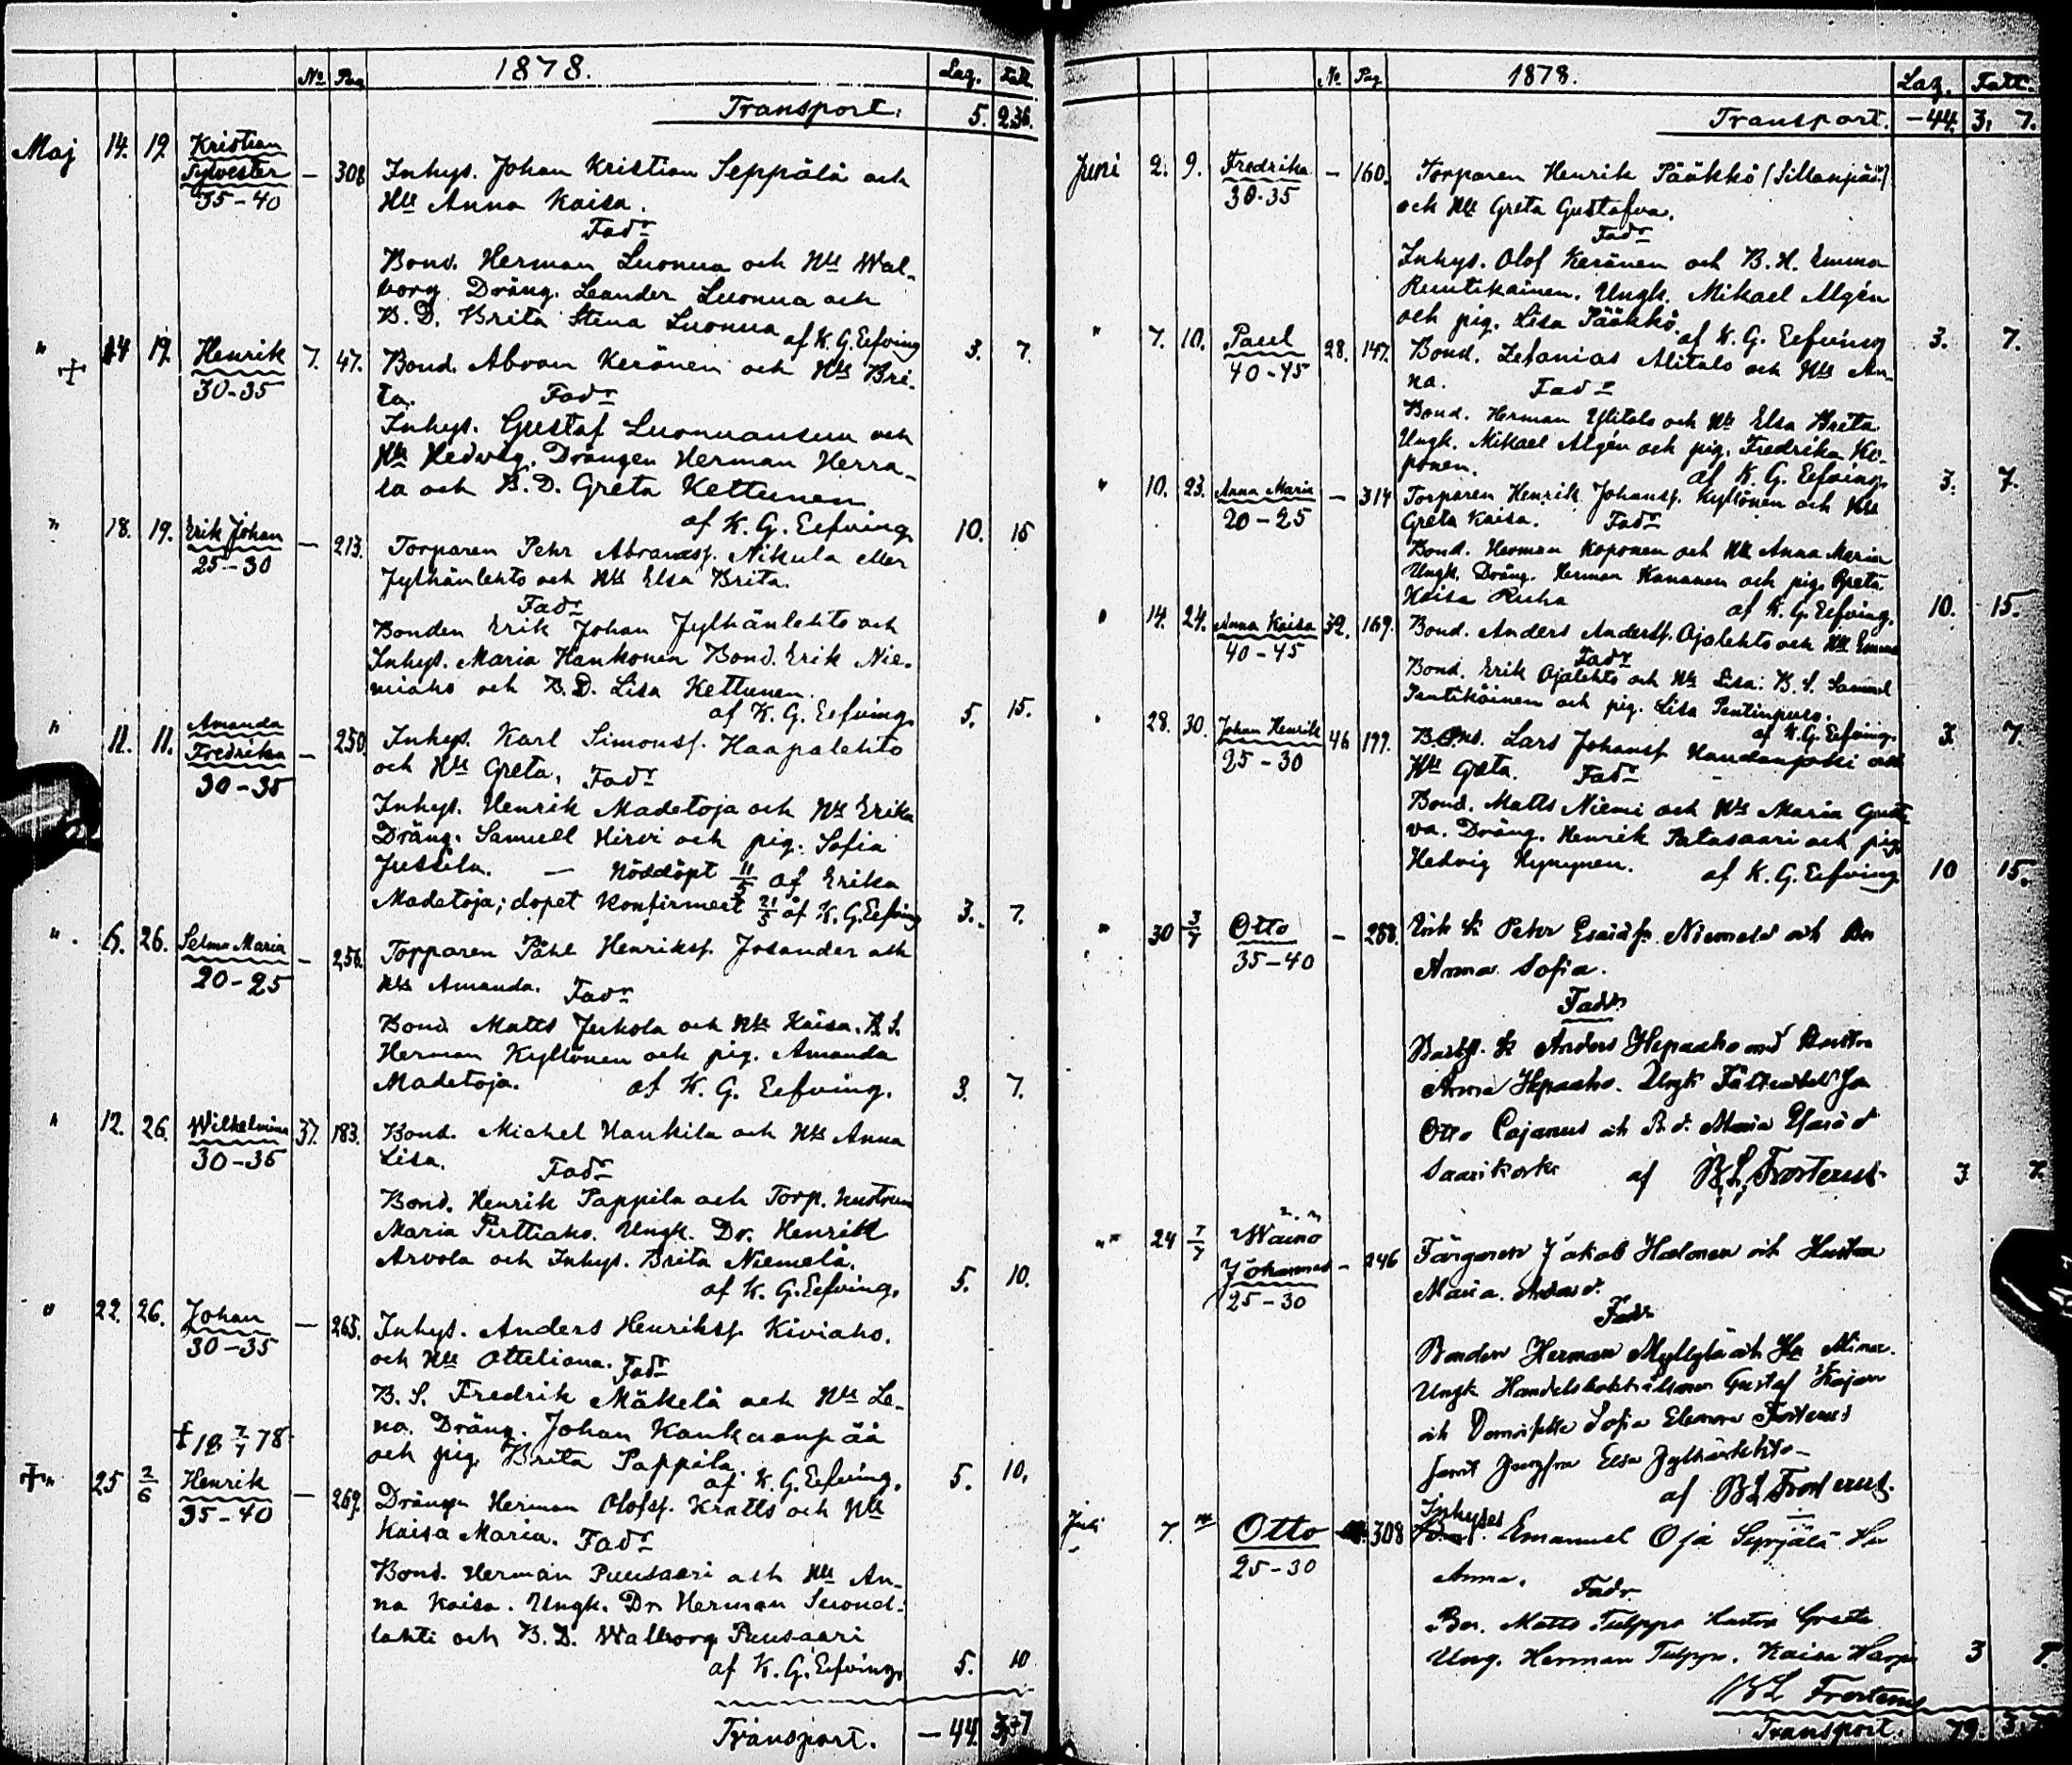 N:o Pag 1878. Lag. Fatt.
Transport. 5. 236.
Maj 14. 19. Kristian
Sylvester — 308 Inhys. Johan Kristian Seppälä och
35-40 H:u Anna Kaisa.
Fad:r
Bond. Herman Luonua och H:u Wal-
borg Dräng. Leander Luonua och
B. D. Brita Stina Luonua af K. G. Eefving 3. 7.
" 14 19. Henrik 7. 47. Bond. Abram Keränen och H:u Bri-
30-35 ta. Fad:r
Inhys. Gustaf Luonuansuu och
H:u Hedwig. Drängen Herman Herra-
la och B. D. Greta Kettunen
af K. G. Eefving. 10. 15
" 18. 19. Erik Johan — 213. Torparen Pehr Abramsf. Nikula eller
25-30 Jylhänlehto och H:u Elsa Brita.
Fad:r
Bonden Erik Johan Jylhänlehto och
Inhys. Maria Hankonen Bond. Erik Nie-
miaho och B. D. Lisa Kettunen.
af K. G. Eefving. 5. 15.
" 11. 11. Amanda
Fredrika — 250 Inhys. Karl Simonsf. Haapalehto
30-35 och H:u Greta. Fad:r
Inhys. Henrik Madetoja och H:u Erika
Dräng. Samuel Hirvi och pig. Sofia
Jussila. — Nöddöpt 11/5 af Erika
Madetoja; dopet konfirmert 21/5 af K. G. Eefving 3. 7.
" 6. 26. Selma Maria — 256. Torparen Påhl Henriksf. Josander och
20-25 H:u Amanda. Fad:r
Bond. Matts Jukola och H:u Kaisa. B. S.
Herman Kyllönen och pig. Amanda
Madetoja. af K. G. Eefving. 3. 7.
" 12. 26. Wilhelmina 37. 183. Bond. Michel Hankila och H:u Anna
30-35 Lisa. Fad:r
Bond. Henrik Pappila och Torp. hustrun
Maria Pirttiaho. Ungk. Dr. Henrik
Arvola och Inhys. Brita Niemelä.
af K. G. Eefving. 5. 10.
" 22. 26. Johan — 265. Inhys. Anders Henriksf. Kiviaho.
30-35 och H:u Otteliana. Fad:r
B. S. Fredrik Mäkelä och H:u Le-
na. Dräng. Johan Kankaanpää
och pig. Brita Pappila.
af K. G. Eefving. 5. 10.
25 2/6 Henrik — 269. Drängen Herman Olofsf. Kratts och H:u
35-40 Kaisa Maria. Fad:r
Bond. Herman Puusaari och H:u An-
na Kaisa. Ungk. Dr. Herman Suond-
lahti och B. D. Walborg Puusaari
af K. G. Eefving. 5. 10
Transport. — 44.
N:o Pag 1878. Lag. Fatt.
Transport. — 44. 3. 7.
Juni 2. 9. Fredrika — 160. Torparen Henrik Pääkkö (Siltanpää)
30-35 och H:u Greta Gustafva.
Fad:r
Inhys. Olof Keränen och B. H. Emma
Ruutikainen. Ungk. Mikael Algén
och pig. Lisa Pääkkö.
af K. G. Eefving 3. 7.
" 7. 10. Paul 28. 147. Bond. Zefanias Alitalo och H:u An-
40-45 na. Fad:r
Bond. Herman Ylitalo och H:u Elsa Brita.
Ungk. Mikael Algén och pig. Fredrika Ko-
ponen. af K. G. Eefving. 3. 7.
" 10. 23. Anna Maria — 314 Torparen Henrik Johansf. Kyllönen och H:u
20-25 Greta Kaisa. Fad:r
Bond. Herman Koponen och H:u Anna Maria
Ungk. Dräng. Herman Kananen och pig. Greta
Kaisa Ruha af K. G. Eefving. 10. 15.
" 14. 24. Anna Kaisa 32. 169. Bond. Anders Andersf. Ojalehto och H:u Emma
40-45 Fad:r
Bond. Erik Ojalehto och H:u Lisa. B. S. Samuel
Pentikäinen och pig. Lisa Pentinpuro.
af K. G. Eefving. 3. 7.
" 28. 30. Johan Henrik 46 199. Lars Johansf. och
25-30 H:u Greta. Fad:r
Bond. Matts Niemi och H:u Maria Gusta
va. Dräng. Henrik Patasaari och pig.
Hedvig Kynynen. af K. G. Eefving 10 15.
" 30 3/7 Otto — 288. Petter Niemelä och
35-40 Anna Sofia.
Fadr.
Anders Hepoaho med hustru
Anna Hepoaho. Ungk
Otto Cajanus och B. d. Maria
Saarikoski af B. L. Frosterus 3 7.
" 24 7/7 Waino
Johannes — 246 Färgaren Jakob Halonen och Hustru
25-30 Maria
Fadr
Bonden Herman Myllylä och Hu Mina.
Ungk Gustaf
och Sofia Elenora Frosterus
samt Jungfru Elsa Jylhänlehto —
af B L Frosterus.
Juli 7. 14 Otto 308 Inhyses Emanuel Oja Seppälä Hu
25-30 Anna. Fadr.
Bon. Matts Tulppo hustru Greta
Ung. Herman Tulppo. Kaisa 3 7.
B L Frosterus
Transport. 79.